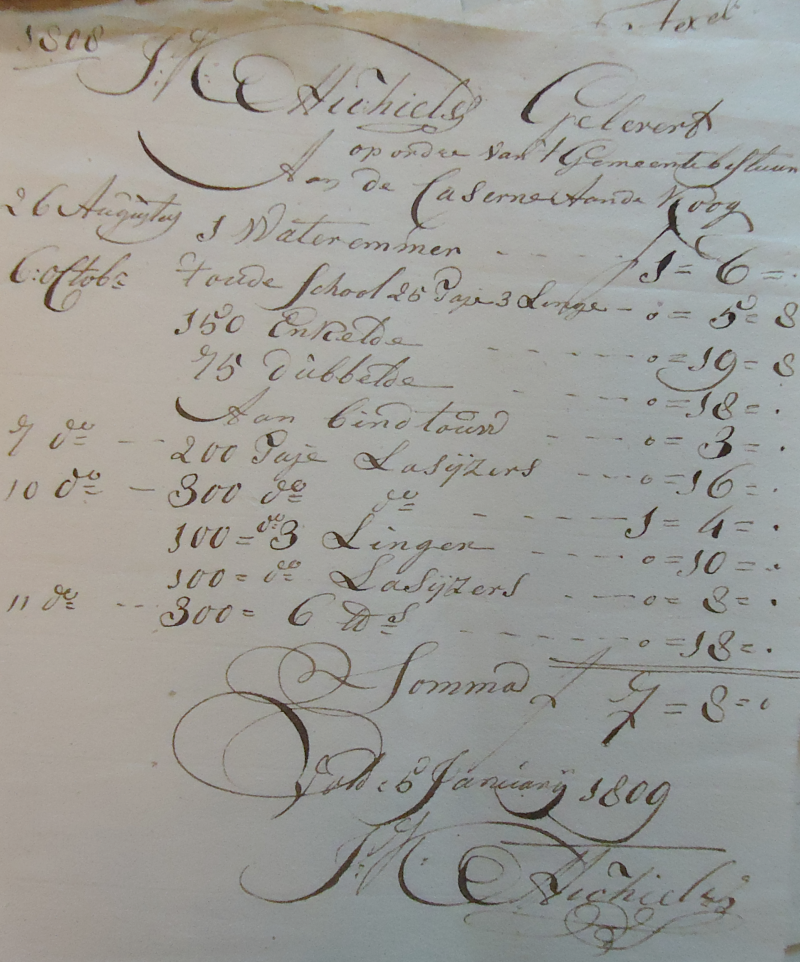 Texel
1808
Michiels Gelevert
op order van 't Gemeentebestuur
Aan de Caserne Aande Koog
26 Augustus 1 Wateremmer - - - ƒ 1 = 6 = .
6: Octobr oude School 25 Taje 3 Linge - 0 = 5 = 8
150 Enkelde - - - 0 = 19 = 8
75 dubbelde - - - 0 = 18 = .
Aan bindtouw - - - 0 = 3 = .
7 do - - 200 Taje Lasijzers - - - 0 = 16 = .
10 do - 300 do do - - - 1 = 4 = .
100 = do 3 Linger - - - 0 = 10 = .
100 = do Lasijzers - - - 0 = 8 = .
11 do - - 300 = 6 - - - 0 = 18 = .
Somma ƒ 7 = 8 = 0
Vold: 5 Januarij 1809
Michiels